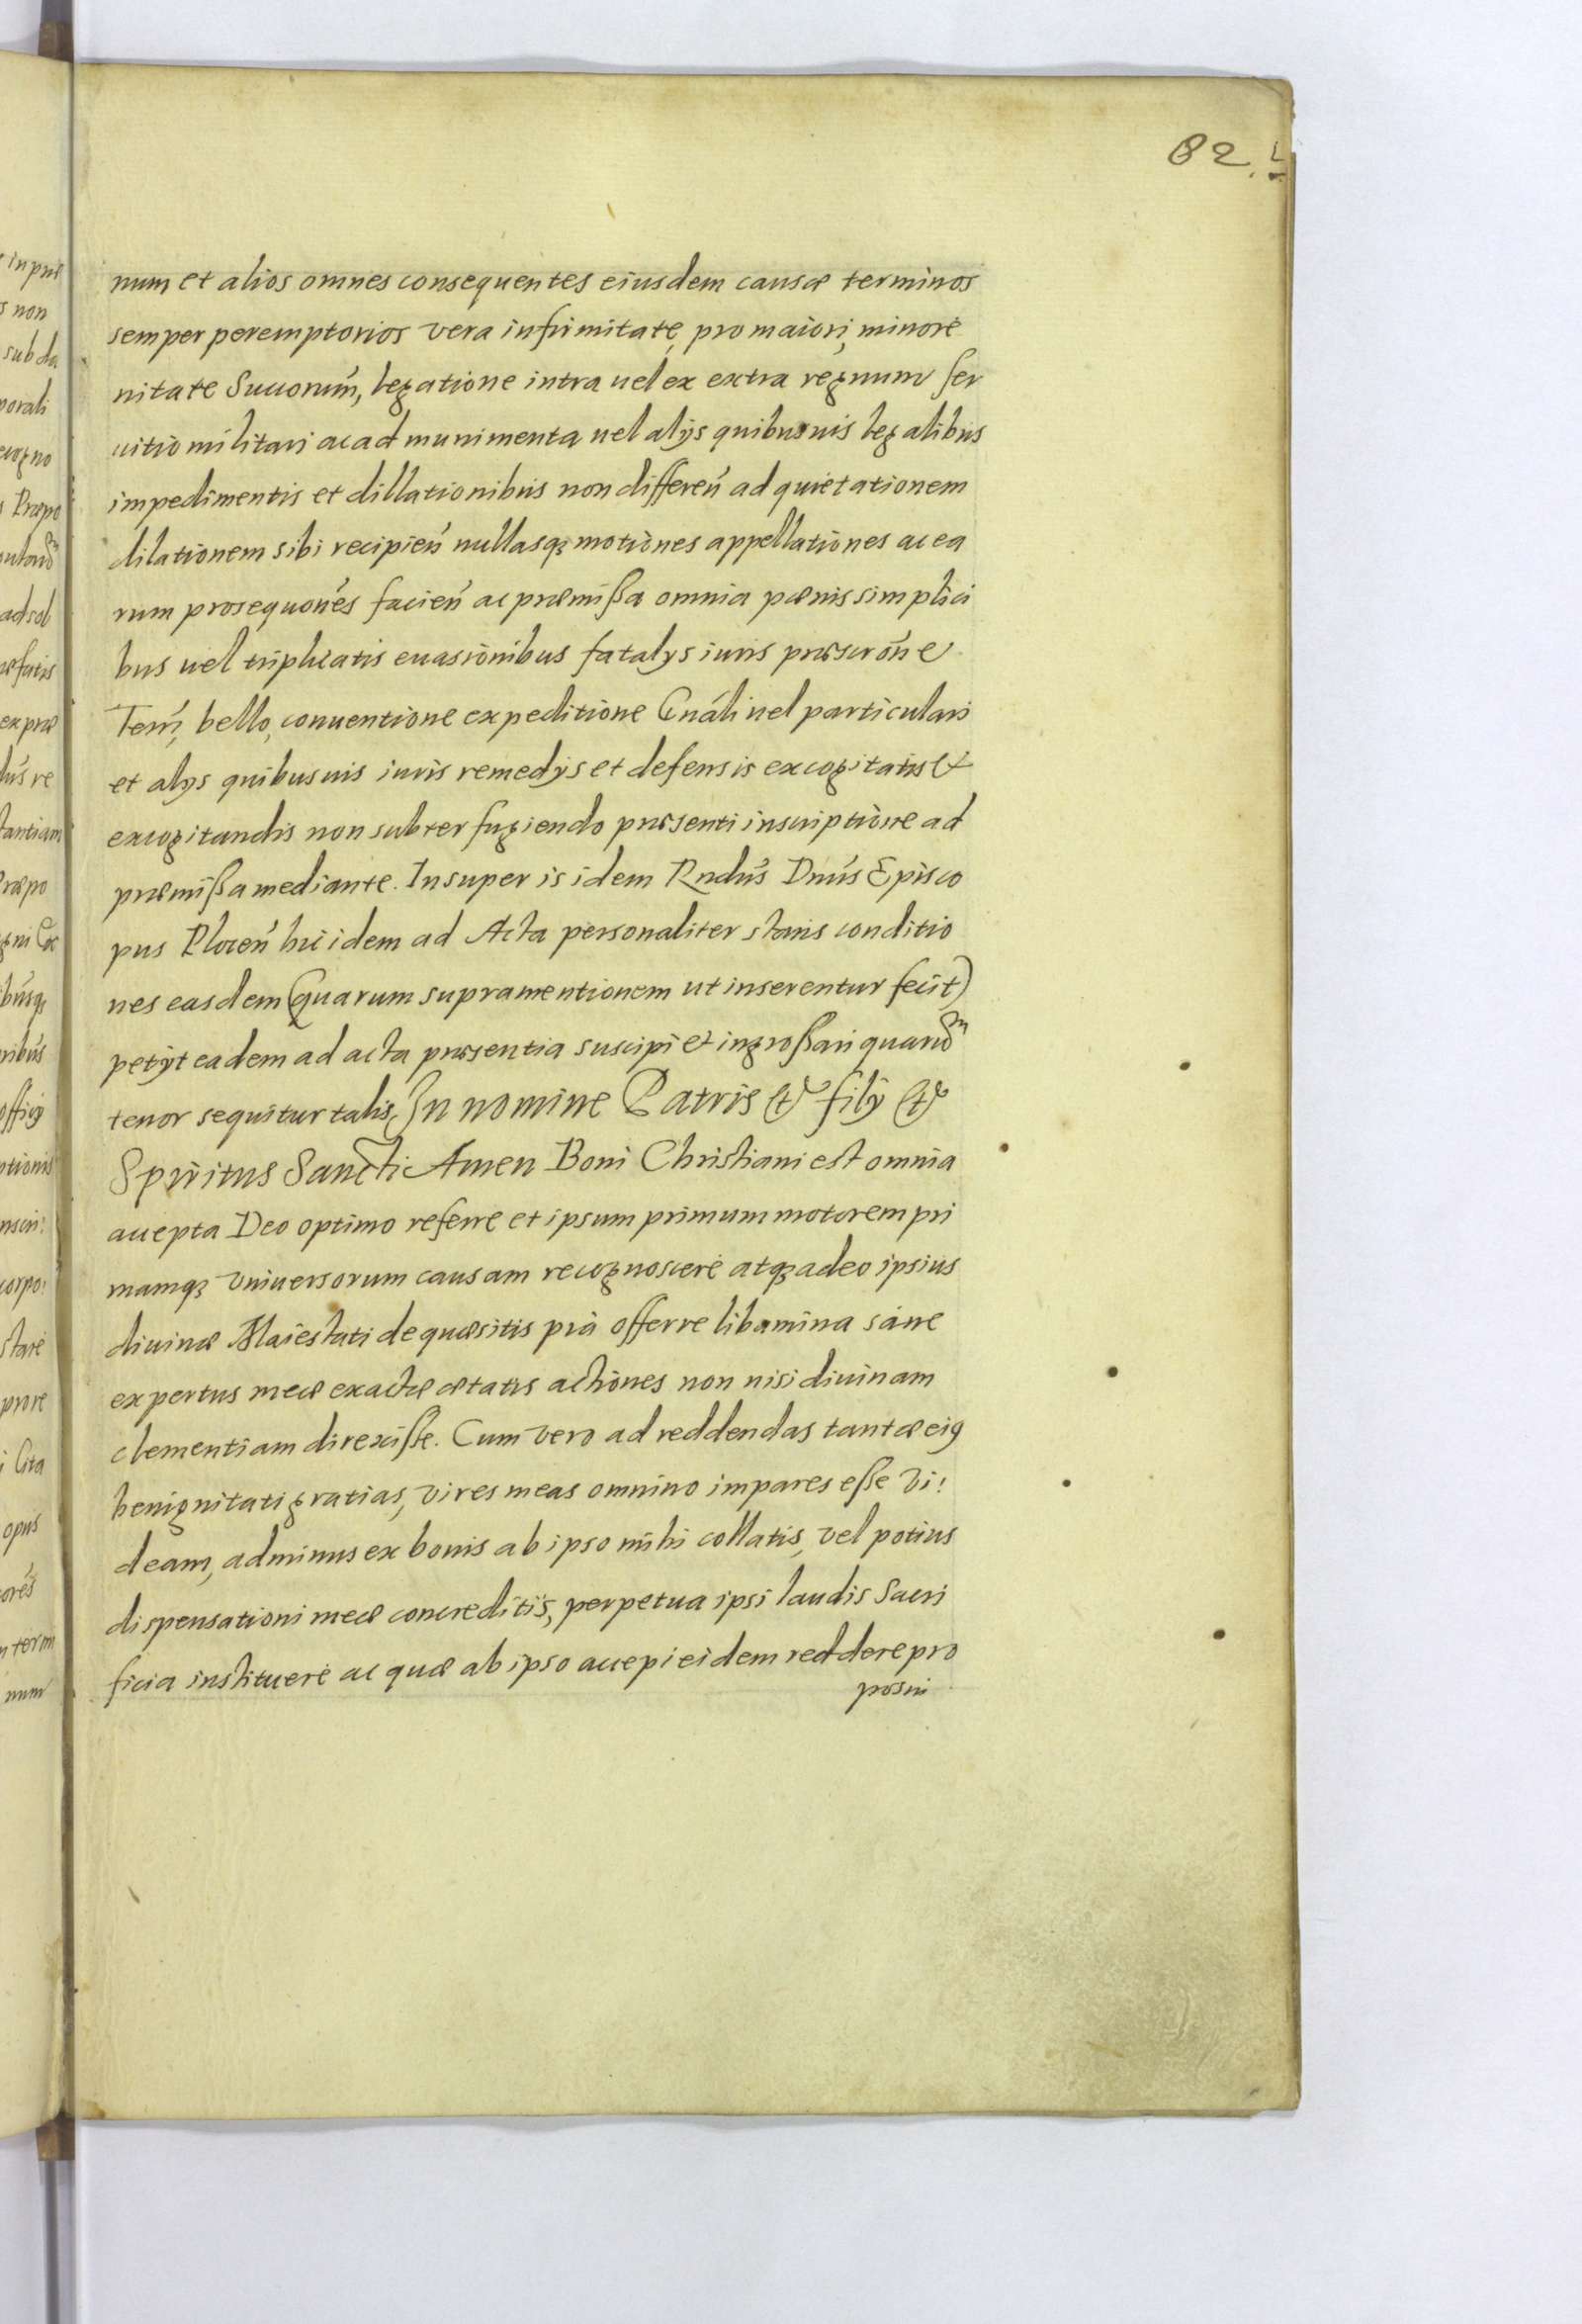 82.
num et alios omnes consequentes eiusdem causæ terminos
semper peremptorios vera infirmitate, pro maiori, minore
nitate Succorum̃, legatione intra uel ex extra regnum ser
uitio militari ac ad munimenta uel alÿs quibusuis legalibus
impedimentis et dillationibus non differeñ ad quietationem
dilationem sibi recipieñ nullasqꝫ motiones appellationes ac ea
rum prosequoñes facieñ ac præmißa omnia pœnis simplici
bus uel triplicatis euasionibus fatalÿs iuris præscroñe
Terr̃, bello, conuentione expeditione Gnãli uel particulari
et alÿs quibusuis iuris remedÿs et defensis excogitatis et
excogitandis non subterfugiendo præsenti inscriptione ad
præmißa mediante. Insuper is idem Rndũs Dnũs Episco
pus Ploceñ hic idem ad Acta personaliter stans conditio
nes easdem (quarum supra mentionem ut inserentur fecit)
petÿt eadem ad acta præsentia suscipi et ingroßari quarũ
tenor sequitur talis, In nomine Patris et filÿ et
Spiritus Sancti Amen Boni Christiani est omnia
accepta Deo optimo referre et ipsum primum motorem pri
mamqꝫ vniuersorum causam recognoscere atqꝫ adeo ipsius
diuinæ Maiestati de quæsitis pia offerre libamina sane
expertus meæ exactæ ætatis actiones non nisi diuinam
clementiam direxiße. Cum vero ad reddendas tantæ eiꝰ
benignitati gratias, vires meas omnino impares eße vi:
deam, ad minus ex bonis ab ipso mihi collatis, vel potius
dispensationi meæ concreditis, perpetua ipsi laudis sacri
ficia instituere ac quæ ab ipso accepi eidem reddere pro
posui